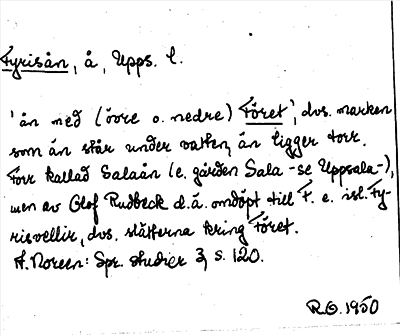 Fyrisån, å, Upps. l.
'ån med (övre o. nedre) Föret', dvs. marken
som än står under vatten, än ligger torr.
Förr kallad Salaån (e. gården Sala - se Uppsala -),
men av Olof Rudbeck d.ä. omdöpt till F. e. isl. Fy-
risvellir, dvs. slätterna kring Föret.
A. Noreen: Spr. studier 3, s. 120.
R.O. 1950